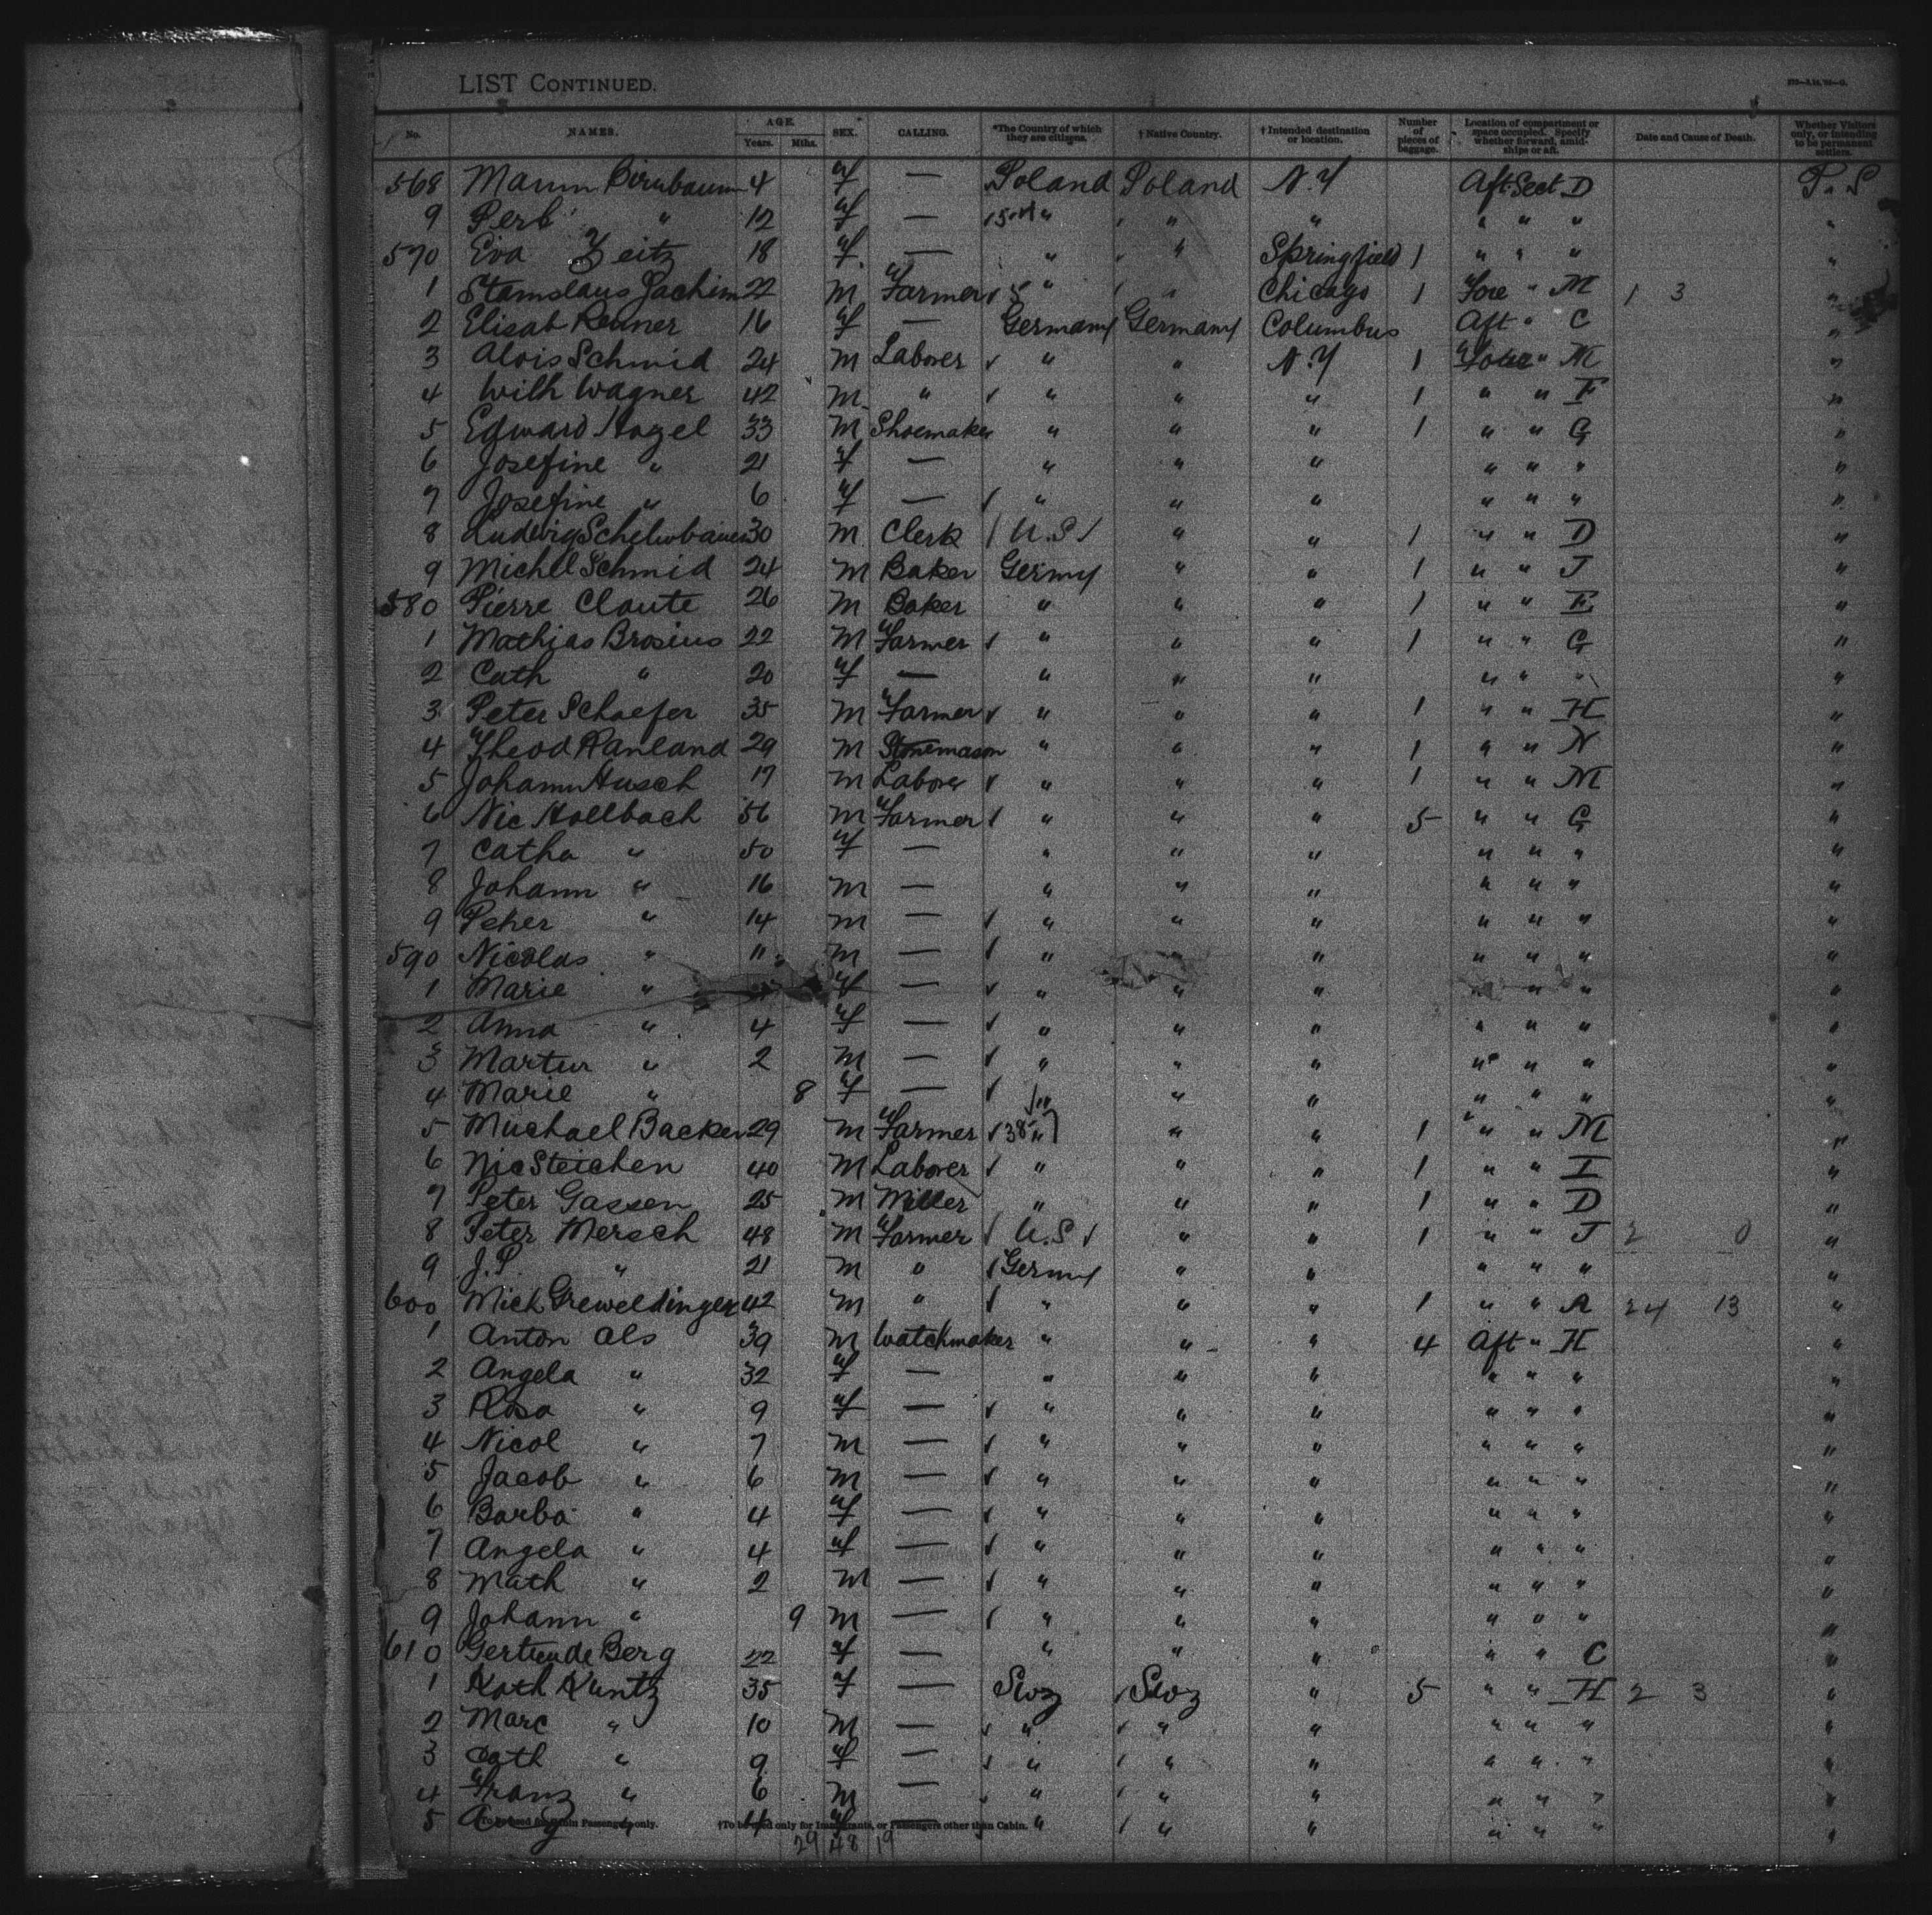 LIST CONTINUED.
No. NAMES. AGE. Years. Mths. SEX. CALLING. *The Country of which they are citizens. †Native Country. †Intended destination or location. Number of pieces of baggage. Location of compartment or space occupied. Specify whether forward, amidships or aft. Date and Cause of Death. Whether Visitors only, or intending to be permanent settlers.
568 Birnbaum 4 f — Poland Poland N.Y Aft Sect D P. S
9 Perb " 12 f — " " " " " " "
570 Eva Zeitz 18 f — " " Springfield 1 " " " "
1 Stanislaus Jachim 22 m Farmer " " Chicago 1 Fore " M 1 3 "
2 Elisab Renner 16 f — Germany Germany Columbus Aft " C "
3 Alois Schmid 24 m Laborer " " N.Y 1 Fore " M "
4 Wilh Wagner 42 m " " " " 1 " " F "
5 Edward Hagel 33 M Shoemaker " " " 1 " " G "
6 Josefine " 21 f — " " " " " " "
7 Josefine " 6 f — " " " " " " "
8 Ludwig 30 m Clerk U.S " " 1 " " D "
9 Michel Schmid 24 m Baker Germy " " 1 " " J "
580 Pierre Claute 26 m Baker " " " 1 " " E "
1 Mathias Brosius 22 M Farmer " " " 1 " " G "
2 Cath " 20 f — " " " " " " "
3 Peter Schaefer 35 M Farmer " " " 1 " " H "
4 Theod Ranland 29 M Stonemason " " " 1 " " N "
5 Johann Husch 17 m Laborer " " " 1 " " M "
6 Nic Hollbach 56 M Farmer " " " 5 " " G "
7 Catha " 50 f — " " " " " " "
8 Johann " 16 m — " " " " " " "
9 Peter " 14 m — " " " " " " "
590 Nicolas " 11 m — " " " " " " "
1 Marie " f — " " " " " "
2 Anna " 4 f — " " " " " " "
3 Martin " 2 m — " " " " " " "
4 Marie " 8 f — " " " " " " "
5 Michael Backer 29 m Farmer 38 " " " 1 " " M "
6 Nic Steichen 40 M Laborer " " " 1 " " I "
7 Peter Gassen 25 M Miller " " " 1 " " D "
8 Peter Mersch 48 M Farmer U.S " " 1 " " J 2 0 "
9 J.P. " 21 m " Germy " " " " " "
600 Mich Greweldinger 42 m " " " " 1 " " A 24 13 "
1 Anton Als 39 M Watchmaker " " " 4 Aft " H "
2 Angela " 32 f — " " " " " " "
3 Rosa " 9 f — " " " " " " "
4 Nicol " 7 m — " " " " " " "
5 Jacob " 6 m — " " " " " " "
6 Barba " 4 f — " " " " " " "
7 Angela " 4 f — " " " " " " "
8 Math " 2 m — " " " " " " "
9 Johann " 9 m — " " " " " " "
610 Gertrude Berg 22 f — " " " " " C "
1 Kath Kuntz 35 f — Swz Swz " 5 " " H 2 3 "
2 Marc " 10 M — " " " " " " "
3 Cath " 9 f — " " " " " " "
4 Franz " 6 m — " " " " " " "
5 " 4 f — " " " " " " "
†To be used only for Immigrants, or Passengers other than Cabin.
29 48 19